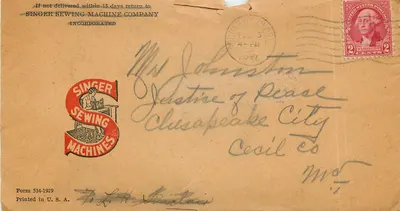 If not delivered within 15 days return to
SINGER SEWING MACHINE COMPANY
INCORPORATED
UNITED STATES POSTAGE
2 2
CENTS
Mr Johnston
Justice of Peace
Chesapeake City
Cecil Co
Md.
SINGER
SEWING
MACHINES
Form 534-1929
Printed in U. S. A.